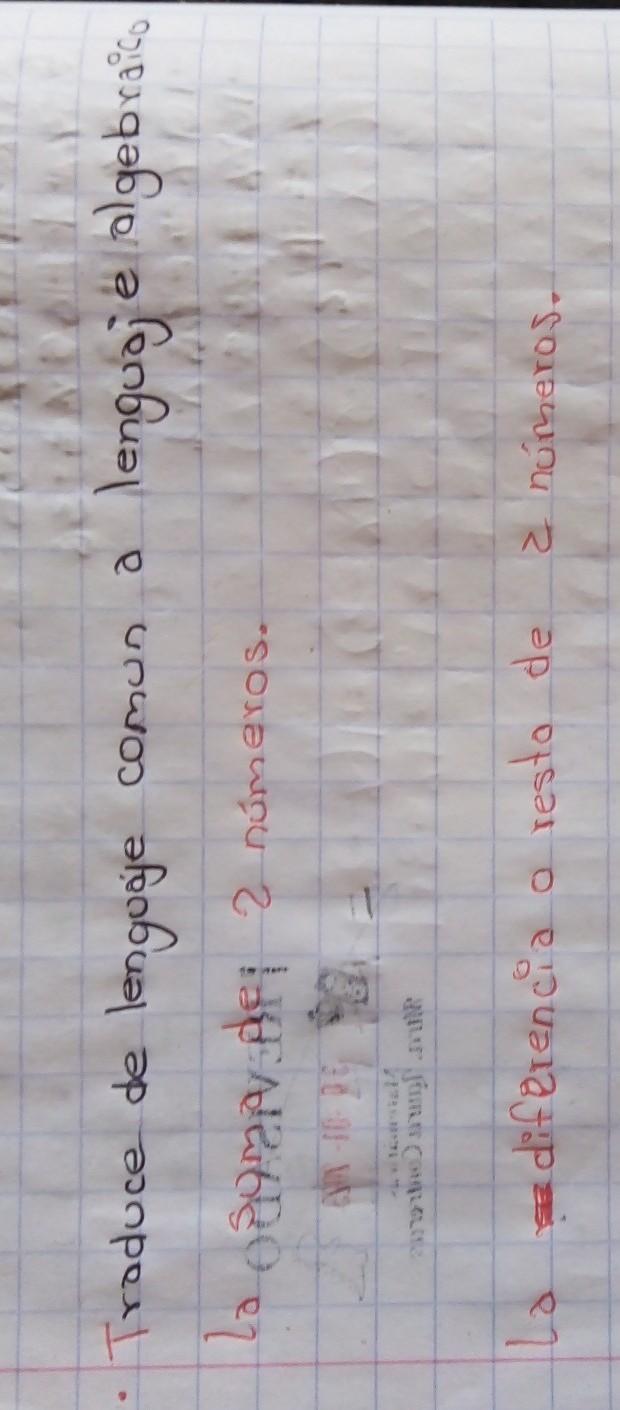 . Traduce de lenguaje comun a lenguaje algebraico
La suma de 2 números.
La diferencia o resto de 2 números.